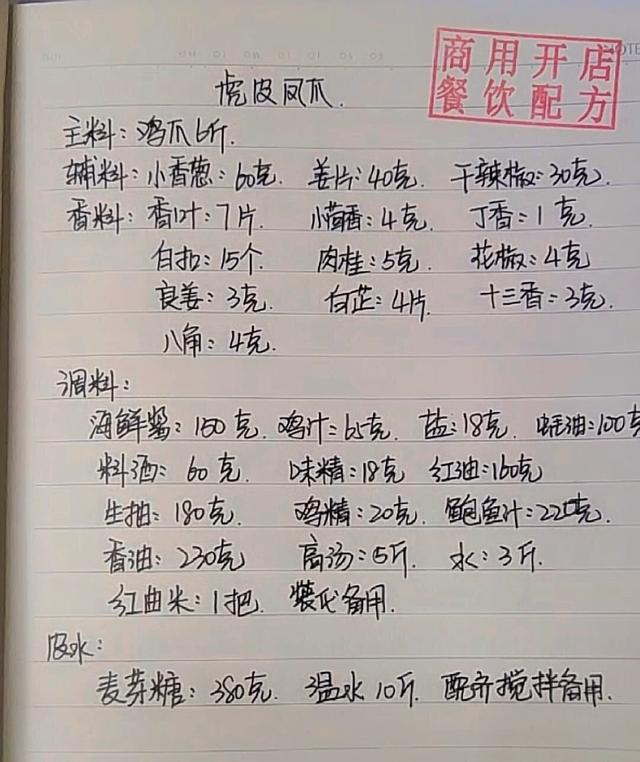 商用开店
餐饮配方
虎皮凤爪.
主料：鸡爪6斤.
辅料：小香葱：60克. 姜片：40克. 干辣椒：30克.
香料：香叶：7片. 小茴香：4克. 丁香：1克.
白扣：15个. 肉桂：5克. 花椒：4克
良姜：3克. 白芷：4片. 十三香：3克.
八角：4克.
调料：
海鲜酱：150克. 鸡汁：65克. 盐：18克. 蚝油：100克
料酒：60克. 味精：18克 红油：160克
生抽：180克. 鸡精：20克. 鲍鱼汁：220克.
香油：230克 高汤：5斤. 水：3斤.
红曲米：1把. 装代备用.
皮水：
麦芽糖：380克. 温水10斤. 配齐搅拌备用.